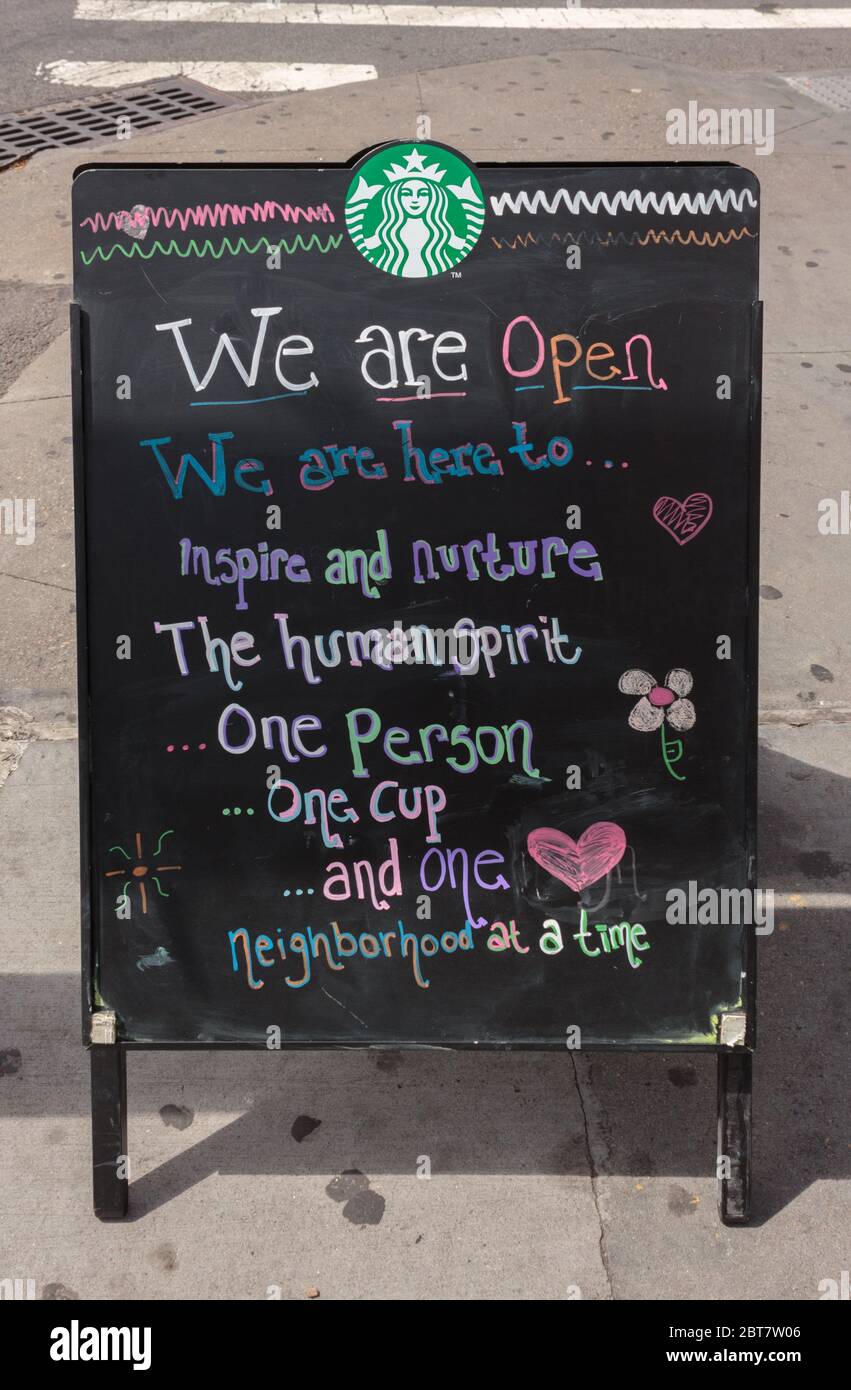 TM
We are Open
We are here to...
Inspire and nurture
The human Spirit
...One Person
...One Cup
...and one
neighborhood at a time
alamy
Image ID: 2BT7W06
www.alamy.com